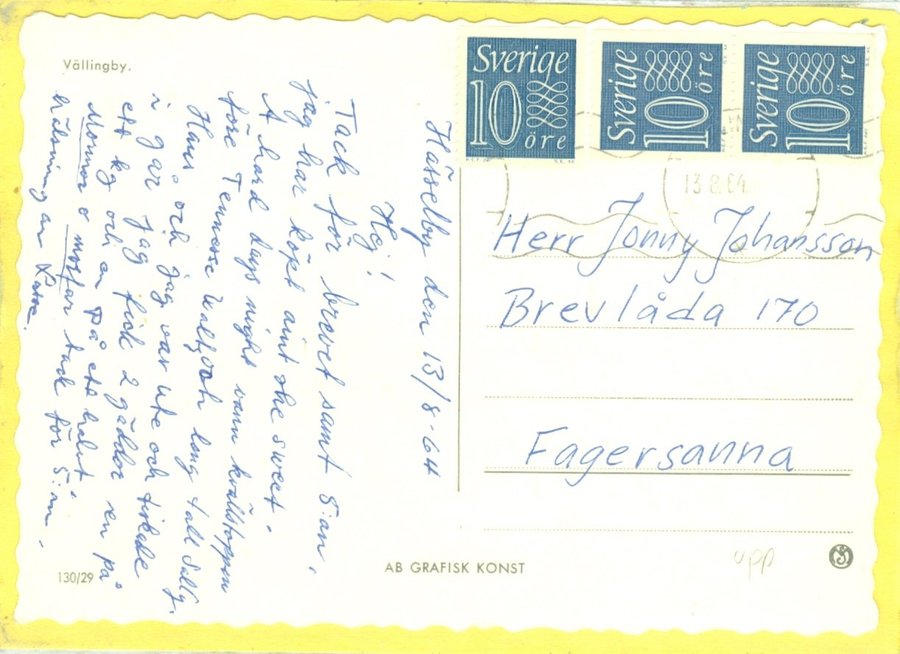 Vällingby.
Hässelby den 13/8-64
Hej!
Tack för brevet samt 5:an.
jag har köpt aint she sweet.
A hard days night vann kvällstoppen
före Tennesse Waltz och long tall Sally.
Hans och jag var ute och fiskade
i går jag fick 2 gäddor en på
ett kg och en på ett halvt.
Mormor o morfar tack för 5:an.
hälsningar Lasse.
130/29
AB GRAFISK KONST
Sverige
10
öre
Sverige
10 öre
Sverige
10 öre
13.8.64
Herr Jonny Johansson
Brevlåda 170
Fagersanna
upp